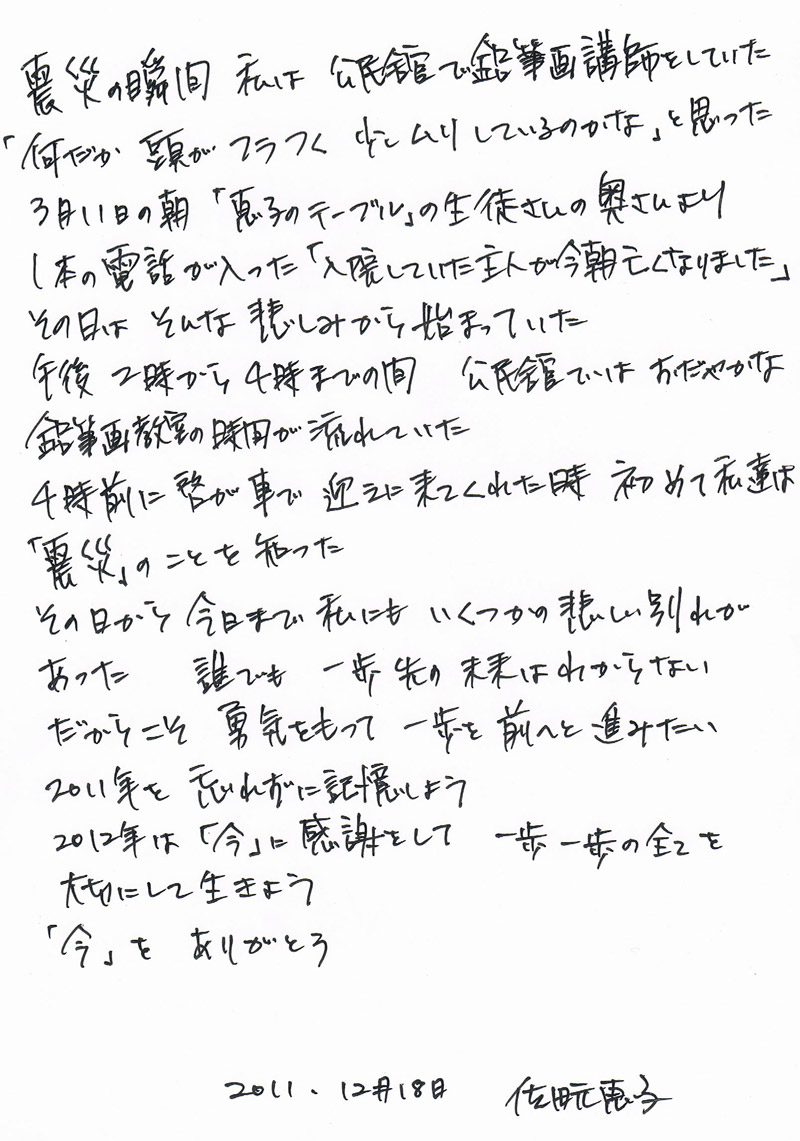 震災の瞬間 私は 公民館で鉛筆画講師をしていた
「何だか 頭が フラつく 少し ムリ しているのかな」と思った
3月11日の朝「恵子のテーブル」の生徒さんの奥さんより
1本の電話が入った「入院していた主人が今朝亡くなりました」
その日は そんな 悲しみから 始まっていた
午後 2時から 4時までの間 公民館では おだやかな
鉛筆画教室の時間が流れていた
4時前に 啓が 車で 迎えに来てくれた時 初めて私達は
「震災」のことを知った
その日から 今日まで 私にも いくつかの悲しい別れが
あった 誰でも 一歩先の 未来はわからない
だからこそ 勇気をもって 一歩を 前へと進みたい
2011年を 忘れずに記憶しよう
2012年は「今」に感謝をして 一歩一歩の全てを
大切にして生きよう
「今」を ありがとう
2011.12月18日 佐田元恵子